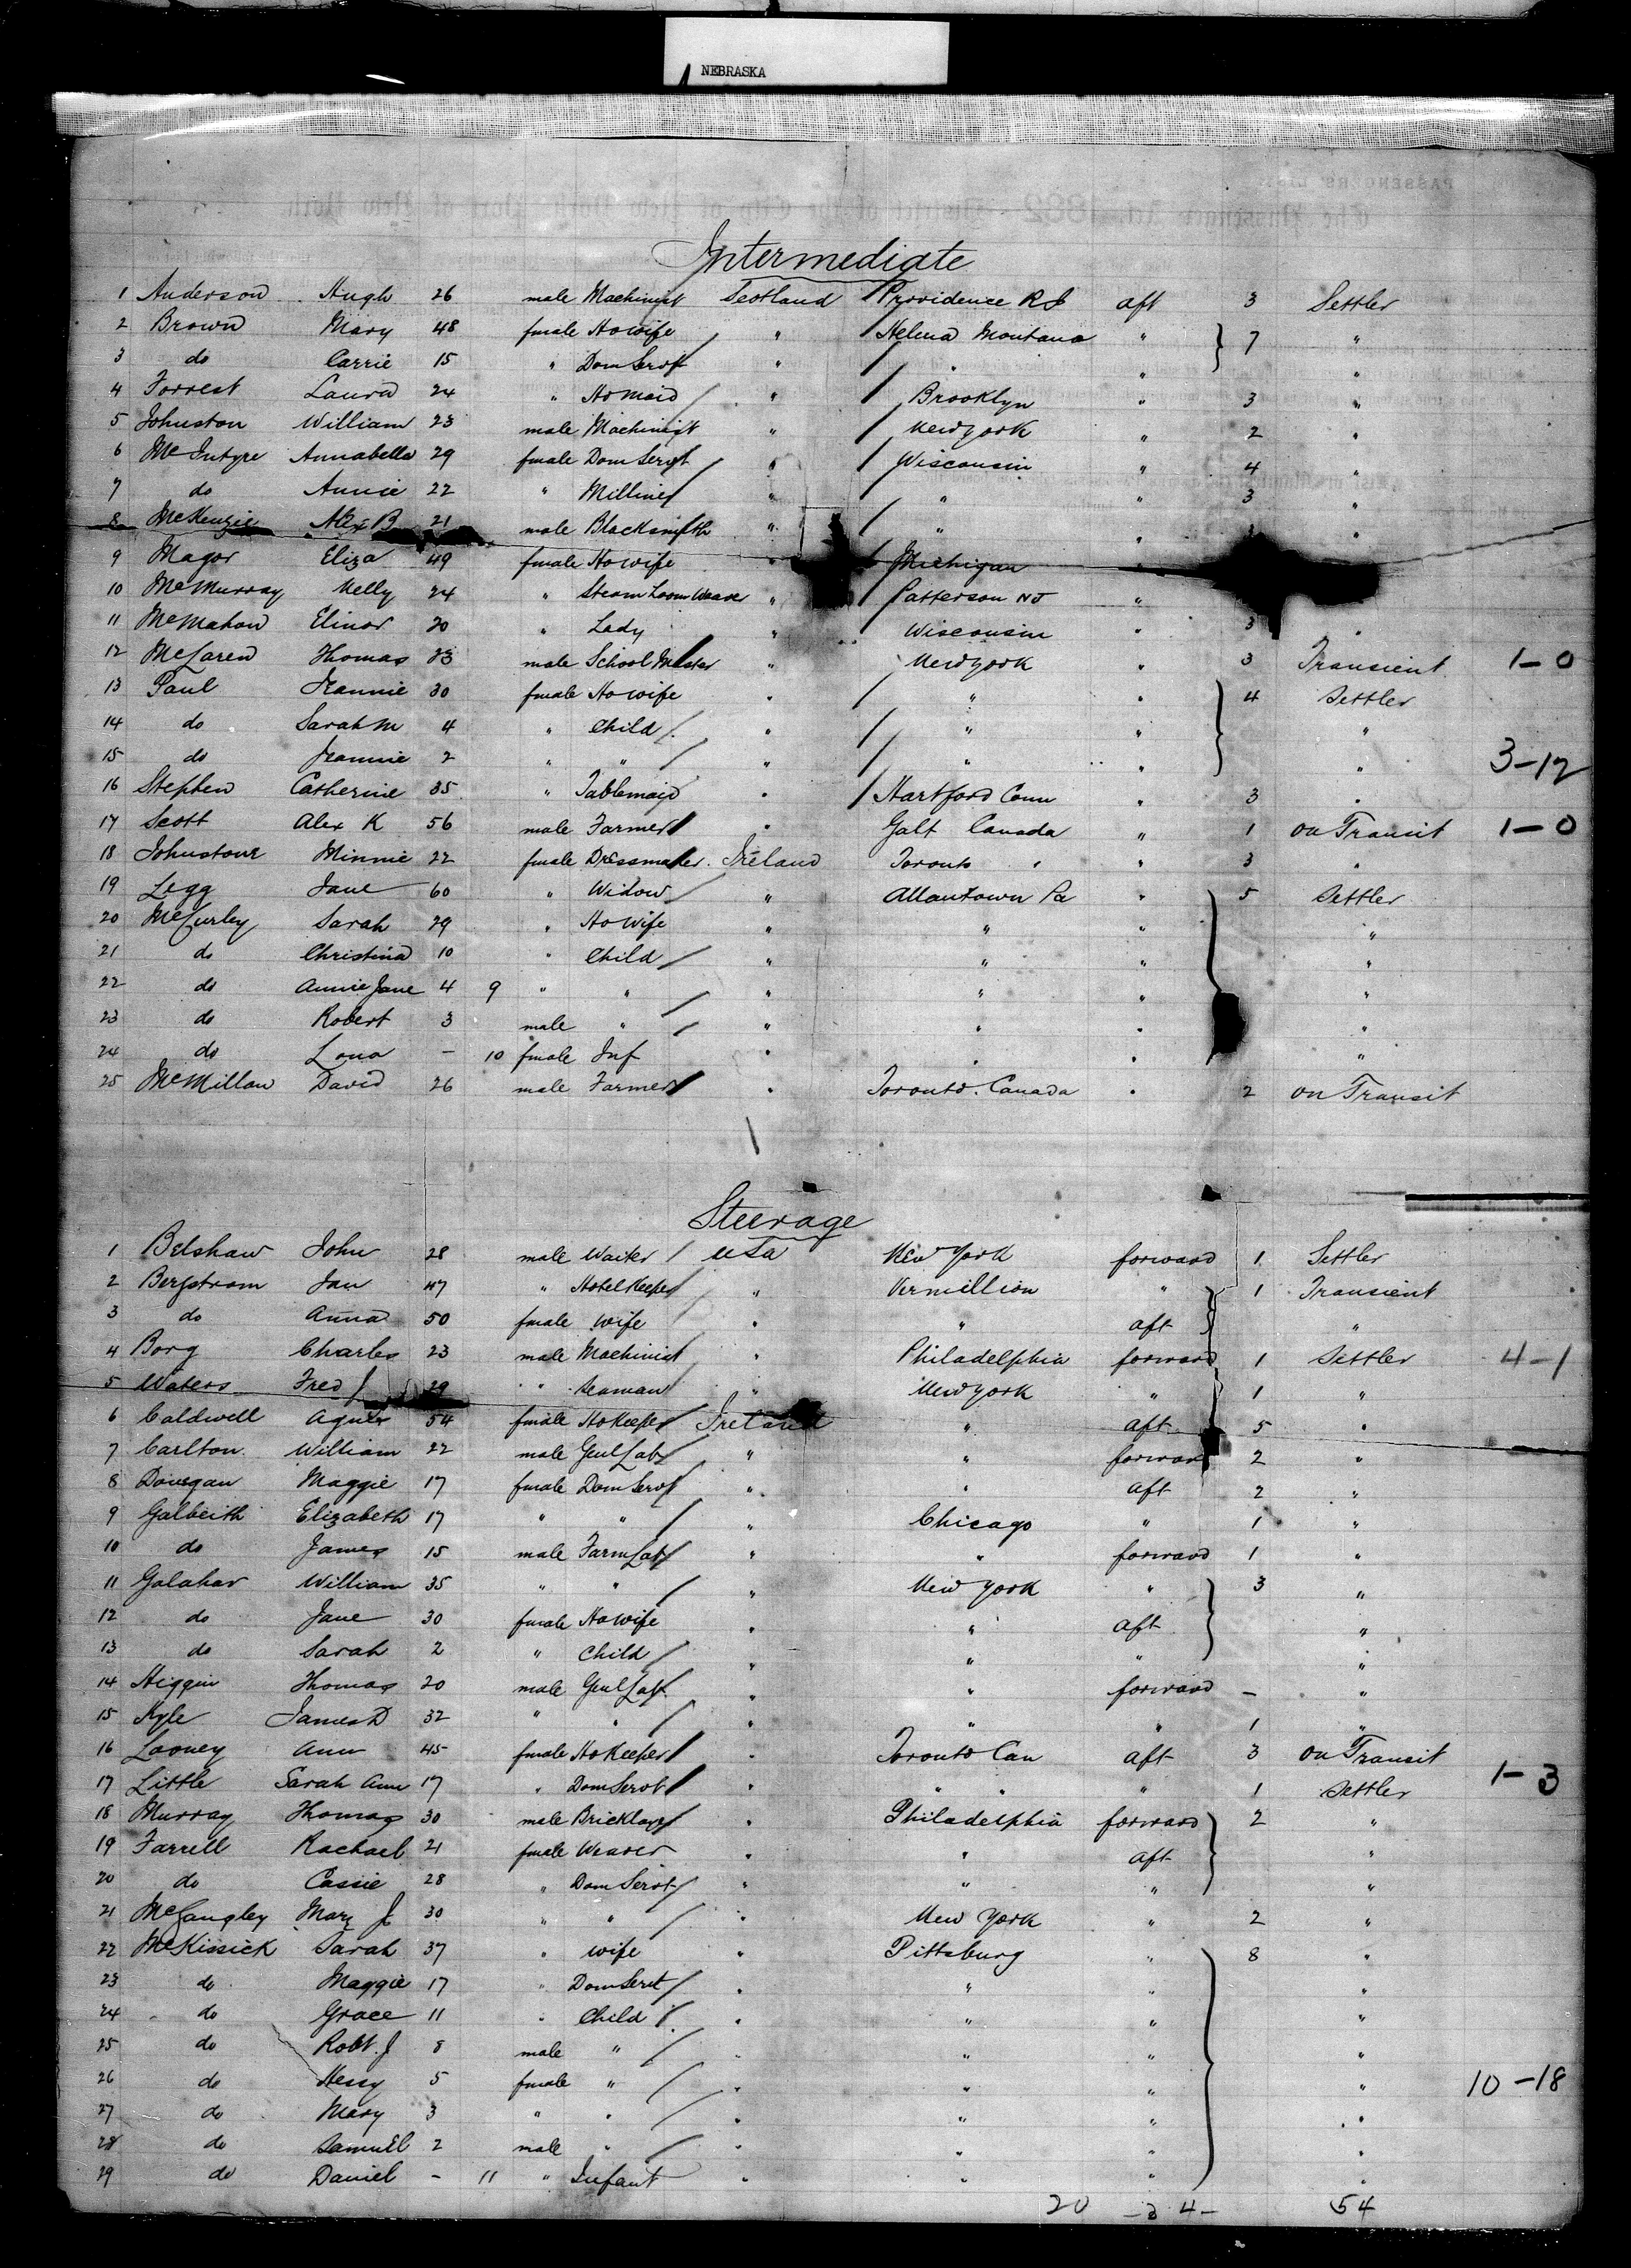 NEBRASKA
Intermediate
1 Anderson Hugh 26 male Machinist Scotland Providence RI aft 3 Settler
2 Brown Mary 48 female Howife " Helena Montana " 7 "
3 do Carrie 15 " Dom Servt " " " "
4 Forrest Laura 24 " Ho maid " Brooklyn " 3 "
5 Johnston William 23 male Machinist " New York " 2 "
6 McIntyre Annabella 29 female Dom Servt " Wisconsin " 4 "
7 do Annie 22 " Milliner " " " 3 "
8 McKenzie Alex B 21 male Blacksmith " " " "
9 Magor Eliza 49 female Howife " Michigan "
10 McMurray Nelly 24 " Steam Loom Weaver " Patterson NJ "
11 McMahon Elinor 20 " Lady " Wisconsin " 3 "
12 McLaren Thomas 23 male School Master " New York " 3 Transient 1-0
13 Paul Jeannie 30 female Howife " " " 4 Settler
14 do Sarah M 4 " Child " " " "
15 do Jeannie 2 " " " " " " 3-12
16 Stephen Catherine 35 " Tablemaid " Hartford Conn " 3 "
17 Scott Alex K 56 male Farmer " Galt Canada " 1 on Transit 1-0
18 Johnstone Minnie 22 female Dressmaker Ireland Toronto " " 3 "
19 Legg Jane 60 " Widow " Allantown Pa " 5 Settler
20 McCurley Sarah 29 " Howife " " " "
21 do Christina 10 " Child " " " "
22 do Annie Jane 4 9 " " " " " "
23 do Robert 3 male " " " " "
24 do Lena - 10 female Inf " " " "
25 McMillan David 26 male Farmer " Toronto. Canada " 2 on Transit
Steerage
1 Belshaw John 28 male Waiter USa New York forward 1 Settler
2 Bergstrom Jan 47 " Hotel Keeper " Vermillion " 1 Transient
3 do Anna 50 female Wife " " aft "
4 Borg Charles 23 male Machinist " Philadelphia forward 1 Settler 4-1
5 Waters Fred J 29 " Seaman " New York " 1 "
6 Caldwell Agnes 54 female HoKeeper Ireland " aft 5 "
7 Carlton William 22 male Genl Labr " " forward 2 "
8 Donegan Maggie 17 female Dom Servt " " aft 2 "
9 Galbeith Elizabeth 17 " " " Chicago " 1 "
10 do James 15 male Farm Labr " " forward 1 "
11 Galahar William 35 " " " New York " 3 "
12 do Jane 30 female Howife " " aft "
13 do Sarah 2 " Child " " " "
14 Higgin Thomas 20 male Genl Labr " " forward - "
15 Kyle James D 32 " " " " " 1 "
16 Looney Ann 45 female HoKeeper " Toronto Can aft 3 on Transit
17 Little Sarah Ann 17 " Dom Servt " " " " 1 Settler 1-3
18 Murray Thomas 30 male Bricklayr " Philadelphia forward 2 "
19 Farrell Rachael 21 female Weaver " " aft "
20 do Cassie 28 " Dom Servt " " " "
21 McLangley Mary J 30 " " " New York " 2 "
22 McKissick Sarah 37 " wife " Pittsburg " 8 "
23 do Maggie 17 " Dom Servt " " " "
24 do Grace 11 " Child " " " "
25 do Robt. J 8 male " " " " "
26 do Hessy 5 female " " " " " 10-18
27 do Mary 3 " " " " " "
28 do Samuel 2 male " " " " "
29 do Daniel - 11 " Infant " " " "
20 -34- 54